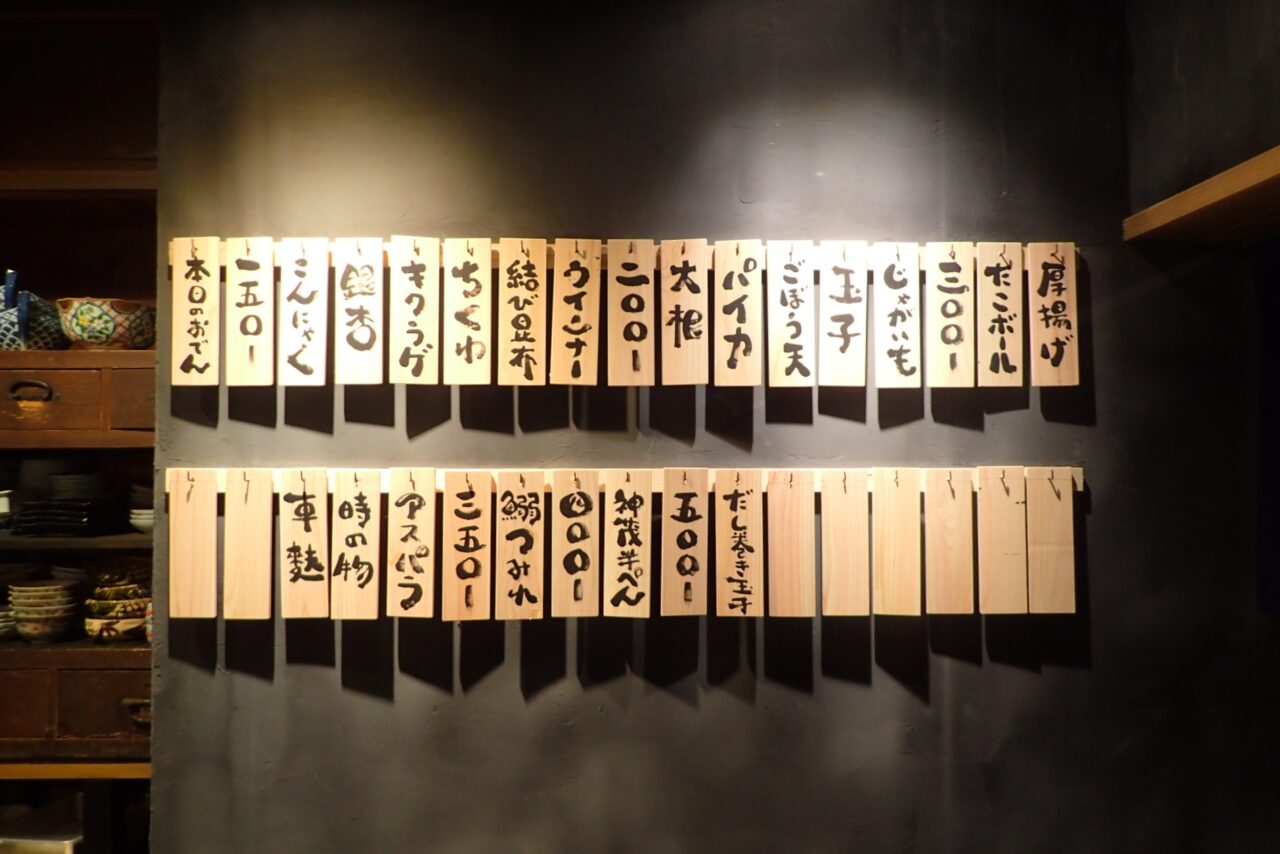 本日のおでん
一五〇ー
こんにゃく
銀杏
キクラゲ
ちくわ
結び昆布
ウインナー
二〇〇ー
大根
パイカ
ごぼう天
玉子
じゃがいも
三〇〇ー
たこボール
厚揚げ
車麩
時の物
アスパラ
三五〇ー
鰯つみれ
四〇〇ー
神茂半ぺん
五〇〇ー
だし巻き玉子